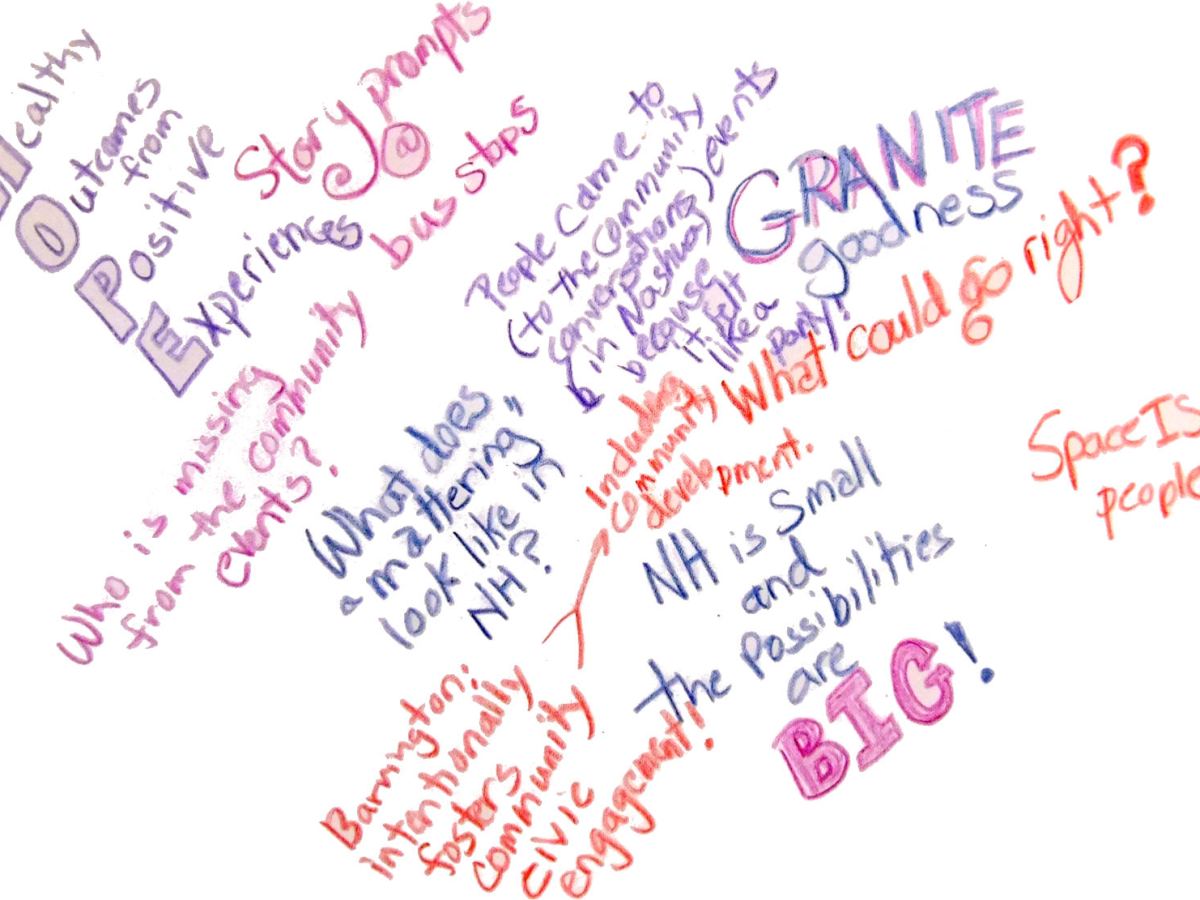 Healthy
Outcomes
from
Positive
Experiences
Story prompts
@
bus stops
People came to
(to the community
conversations) events
(in Nashua)
because
it felt
like a
party!
GRANITE
goodness
What could go right?
Space Is
people
Who is missing
from the community
events?
What does
"mattering"
look like in
NH?
Including
community
development.
NH is Small
and
the Possibilities
are
BIG!
Barrington:
intentionally
fosters
community
civic
engagement!